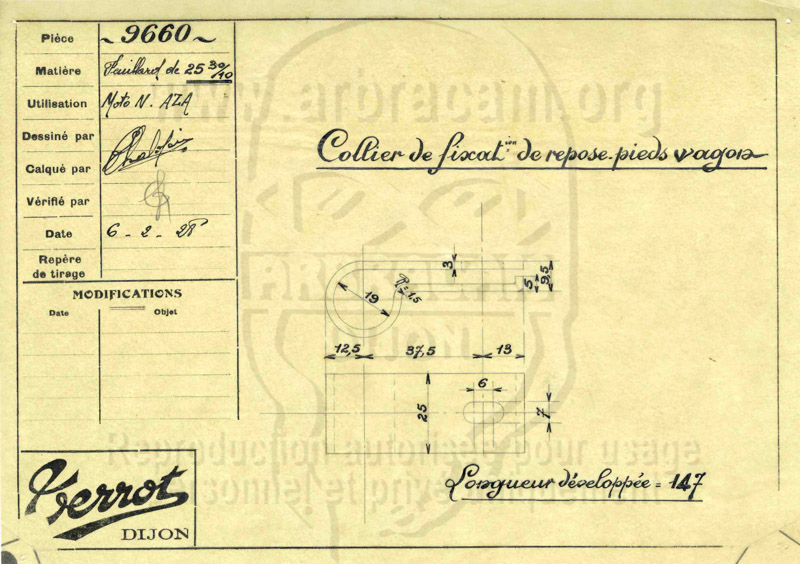 Pièce ~ 9660 ~
Matière Feuillard de 25 30/10
Utilisation Moto N. AZA
Dessiné par
Calqué par
Vérifié par
Date 6 - 2 - 28
Repère
de tirage
MODIFICATIONS
Date Objet
www.arbracam.org
Collier de fixat.ion de repose-pieds wagon
3
5
9,5
19
R=1,5
12,5 37,5 13
6
25
7
Reproduction autorisée pour usage
Longueur développée = 147
Terrot
DIJON